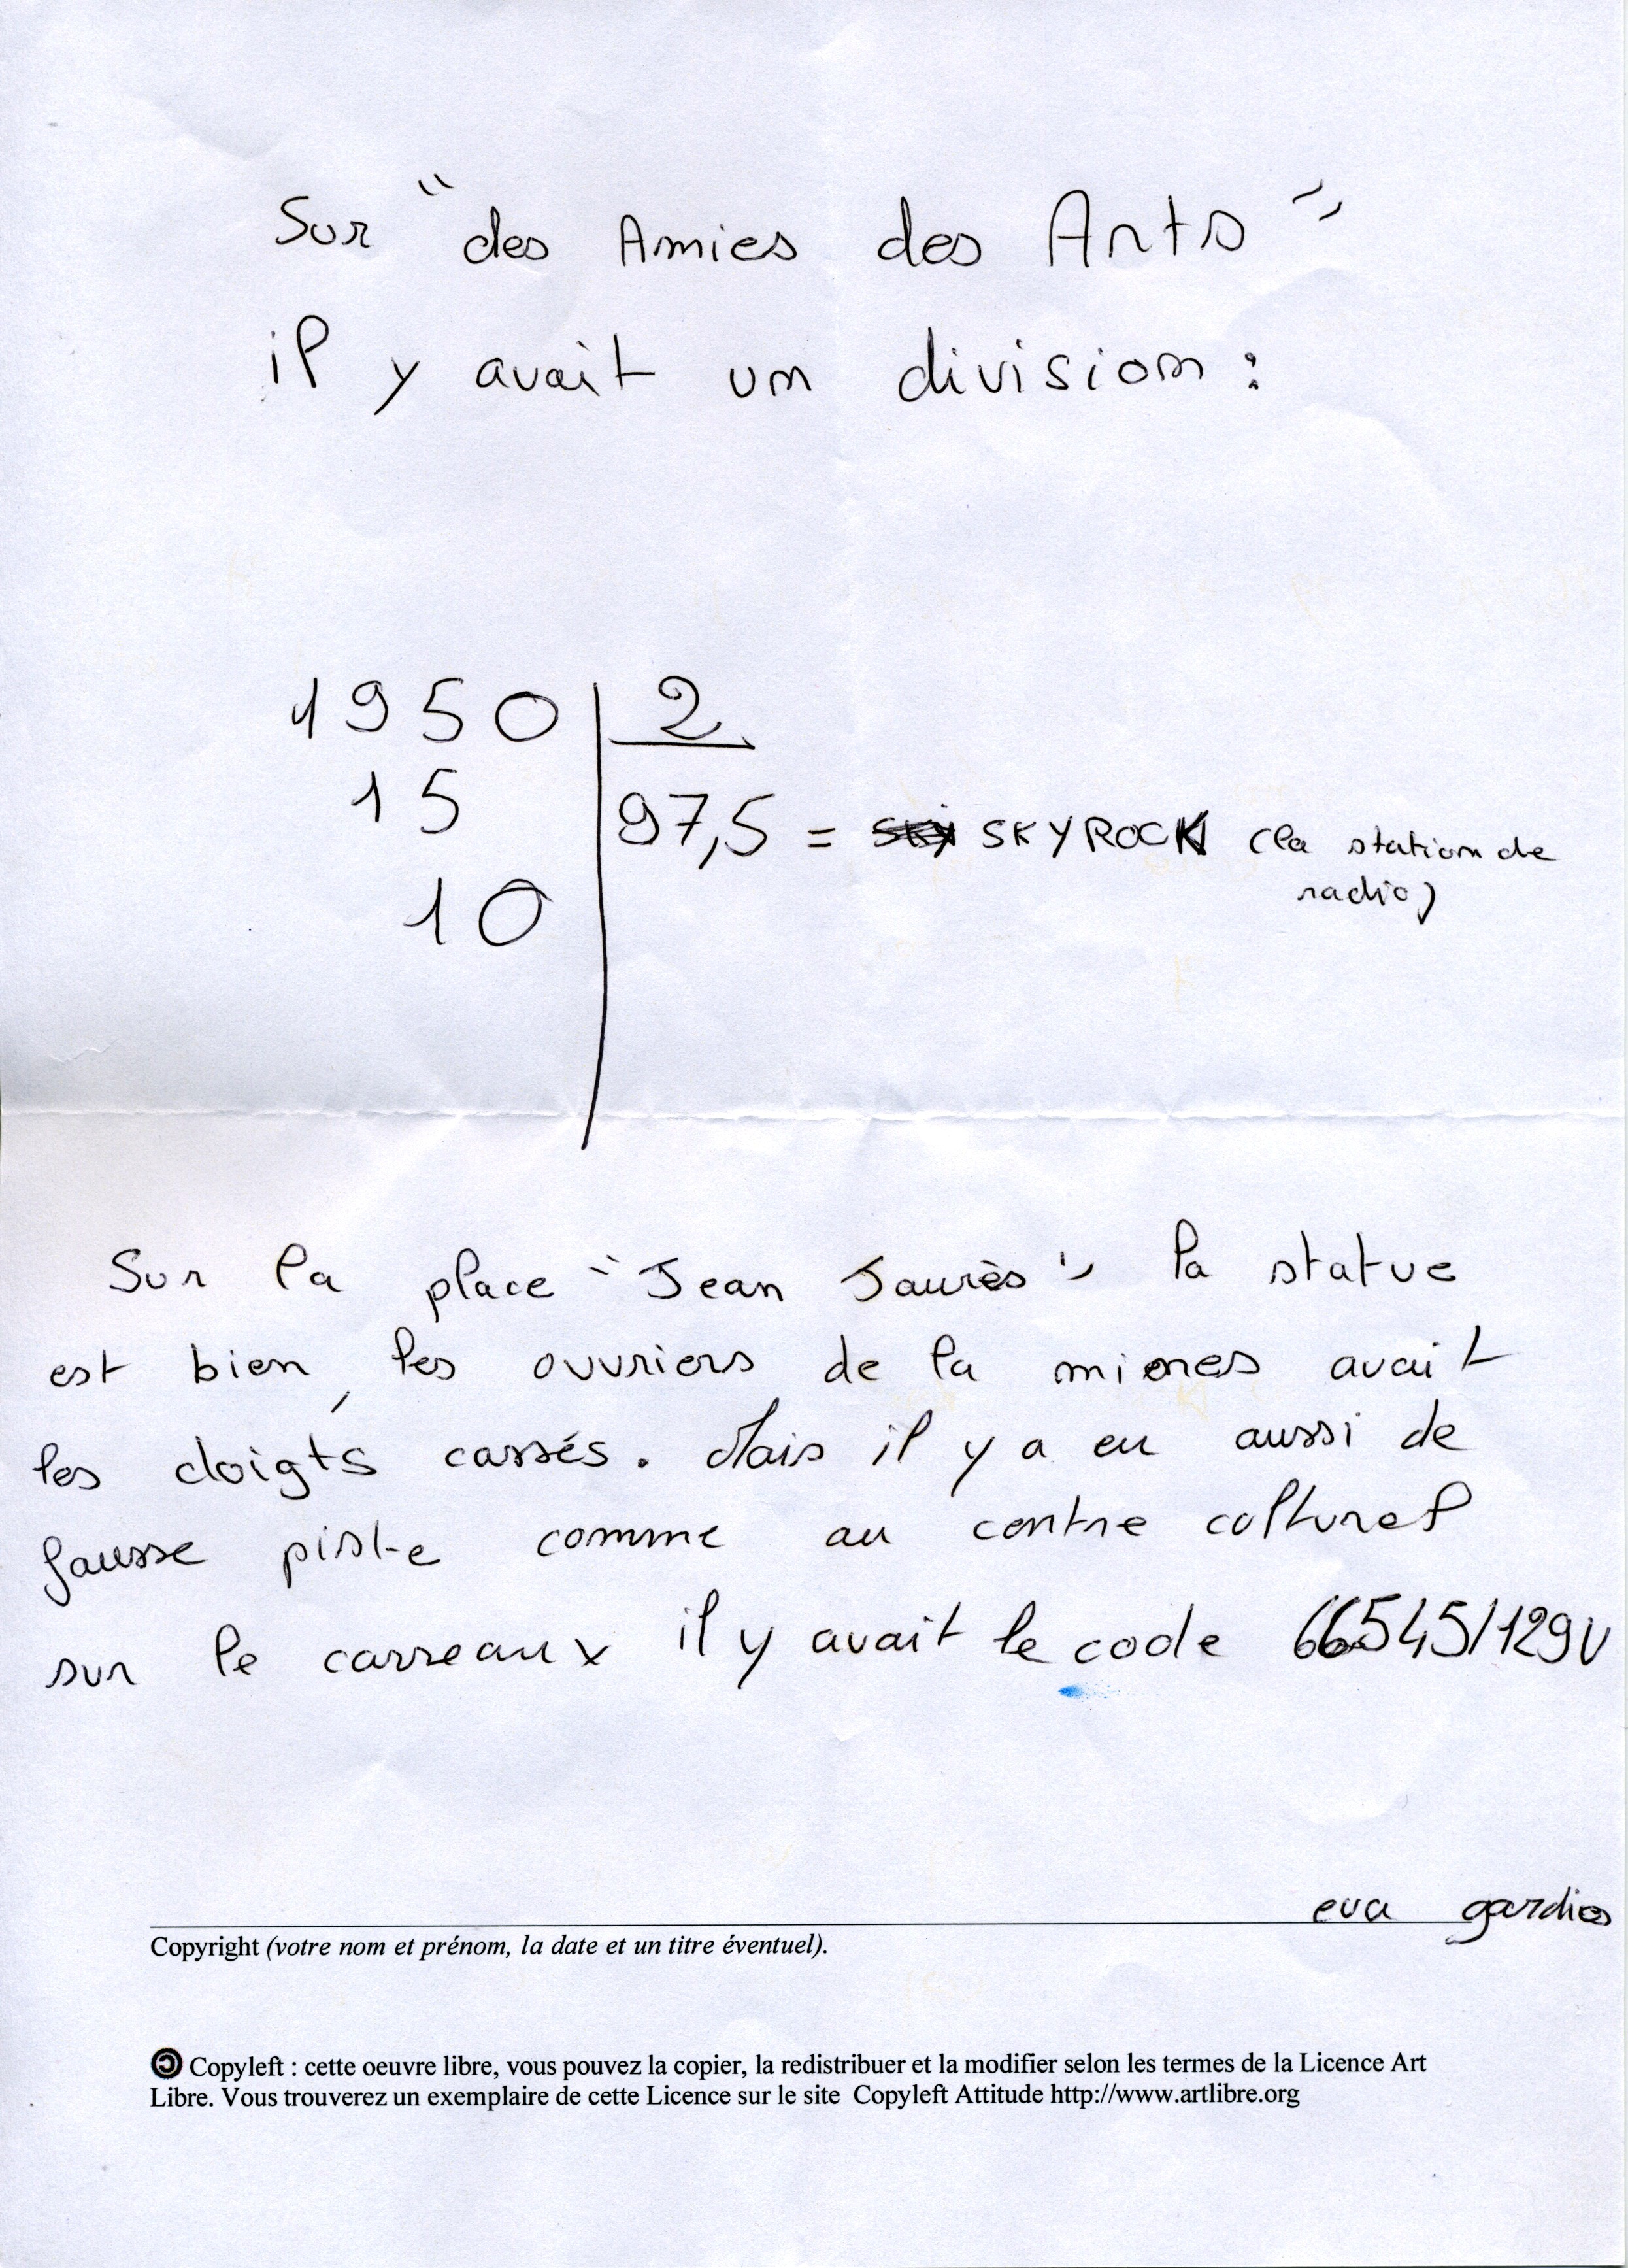 Sur "des Amies des Arts"
il y avait un division :
1950 2
15 97,5 = SKYROCK (la station de
radio)
10
Sur la place "Jean Jaurès" la statue
est bien, les ouvriers de la miones avait
les doigts cassés. Mais il y a eu aussi de
fausse piste comme au centre colturel
sur le carreaux il y avait le code 66545/129V
eva gardies
Copyright (votre nom et prénom, la date et un titre éventuel).
Copyleft : cette oeuvre libre, vous pouvez la copier, la redistribuer et la modifier selon les termes de la Licence Art
Libre. Vous trouverez un exemplaire de cette Licence sur le site Copyleft Attitude http://www.artlibre.org